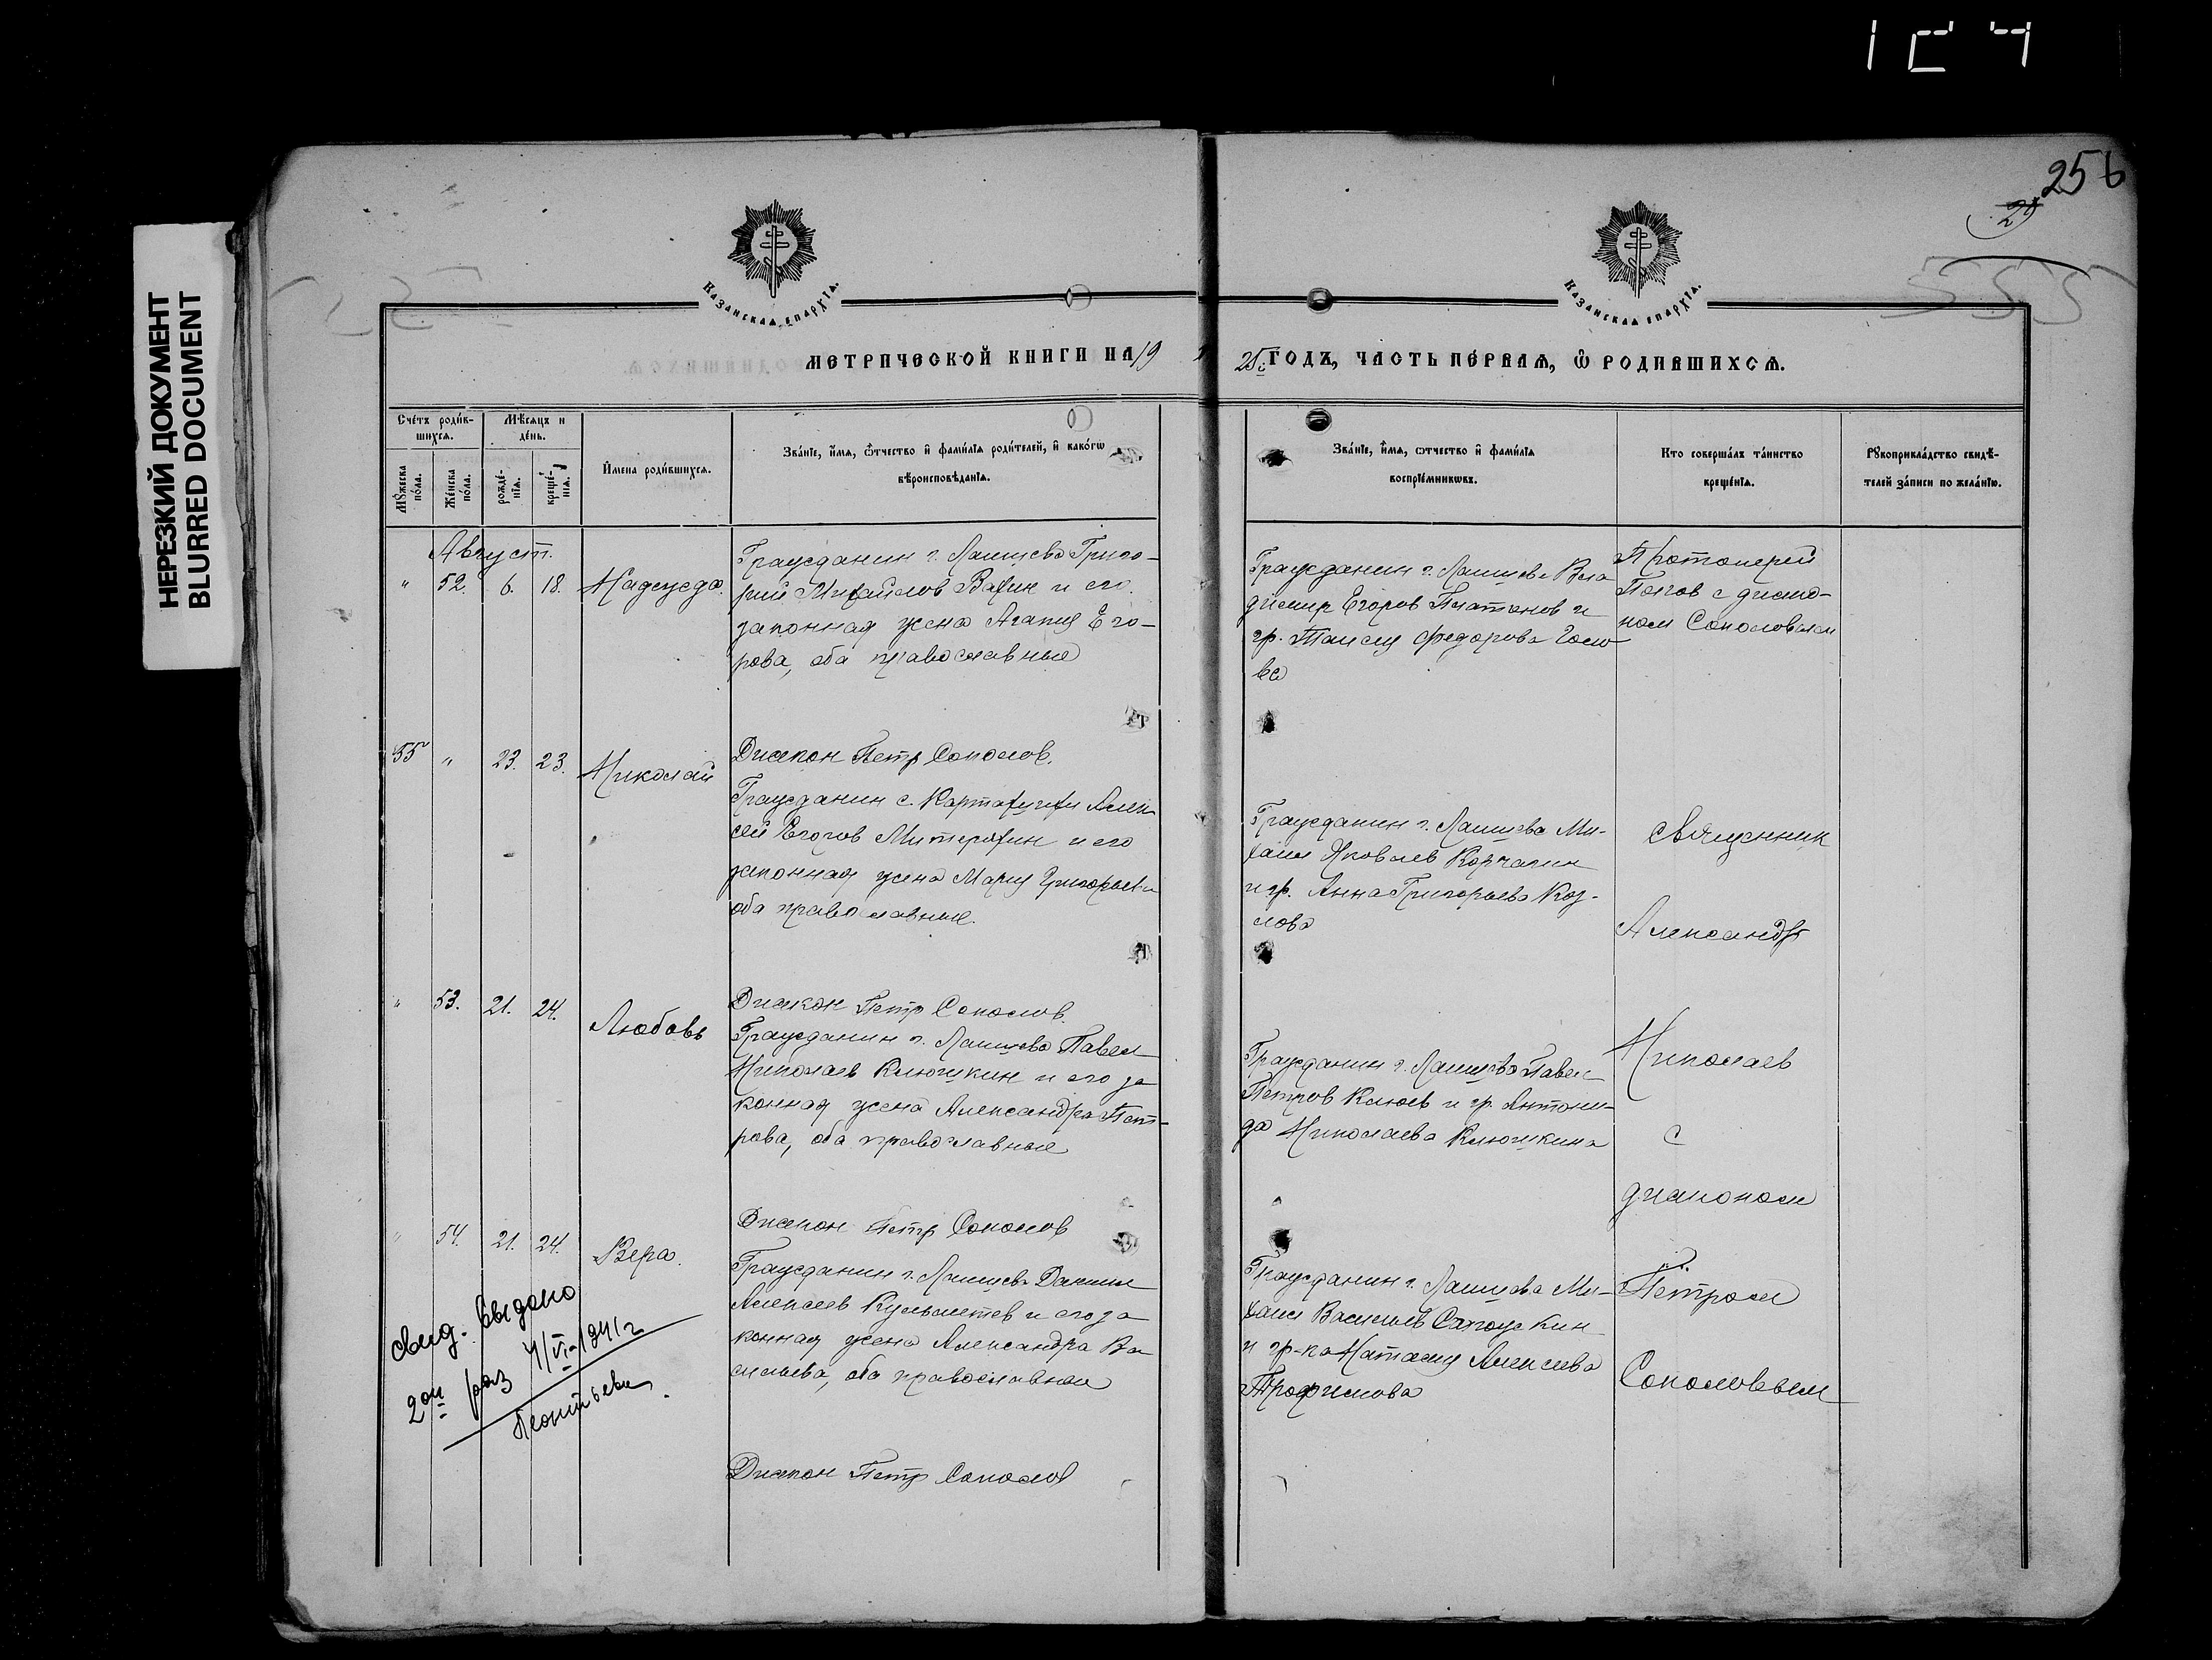 256
29
НЕРЕЗКИЙ ДОКУМЕНТ
BLURRED DOCUMENT
Казанская епархїа.
Казанская епархїа.
МЕТРИЧЕСКОЙ КНИГИ НА 19
25 г. ГОДЪ, ЧАСТЬ ПЕРВАЯ, Ѽ РОДИВШИХСЯ.
Счéтъ роди́в-
шихся.
Мѣсяцъ и
де́нь.
Мꙋ́жеска
по́ла.
Же́нска
по́ла.
рожде́-
нїя.
креще́-
нїя.
И́мена роди́вшихся.
Зва́нїе, и́мя, ѻ́тчество и҆ фами́лїя роди́телей, и҆ како́гѡ
вѣроисповѣ́данїя.
Зва́нїе, и́мя, ѻ́тчество и҆ фами́лїя
воспрїе́мникѡвъ.
Кто соверша́лъ та́инство
креще́нїя.
Рꙋкоприкла́дство свидѣ́-
телей за́писи по жела́нїю.
Август.
" 52. 6. 18. Надежда.
Гражданин г. Лаишева Григо-
рий Михайлов Вахин и его
законная жена Агапия Его-
рова, оба православные
Гражданин г. Лаишева Вла
димир Егоров Платонов и
гр. Таисия Федорова Голо
ва
Протоиерей
Попов с диако-
ном Соколовым
Диакон Петр Соколов.
55 " 23. 23. Николай
Гражданин с. Алек
сей Егоров Митерохин и его
законная жена Мария Григорьева
оба православные.
Гражданин г. Лаишева Ми-
хаил Яковлев Корчагин
и гр. Анна Григорьева Коз-
лова
священник
Александр
Диакон Петр Соколов.
" 53. 21. 24. Любовь
Гражданин г. Лаишева Павел
Николаев Клюшкин и его за
конная жена Александра Пет-
рова, оба православные
Гражданин г. Лаишева Павел
Петров Клюев и гр. Антони-
да Николаева Клюшкина
Николаев
с
диаконом
Диакон Петр Соколов
" 54. 21. 24. Вера.
Гражданин г. Лаишева Даниил
Алексеев Кульметев и его за
конная жена Александра Ва
сильева, оба православные
Гражданин г. Лаишева Ми-
хаил Васильев Сапожкин
и гр-ка Наталия Алексеева
Трофимова
Петром
Соколовым
свид. выдано
2ой раз 4/VI-1941 г
Леонтьева.
Диакон Петр Соколов